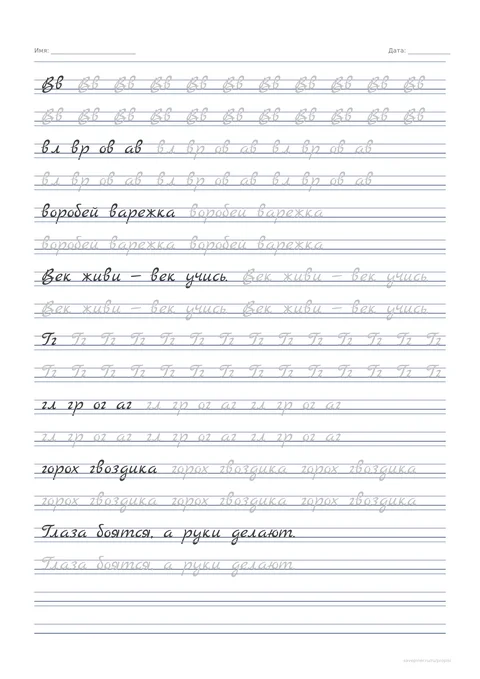 Имя: Дата:
Вв Вв Вв Вв Вв Вв Вв Вв Вв Вв Вв
Вв Вв Вв Вв Вв Вв Вв Вв Вв Вв Вв
вл вр ов ав вл вр ов ав вл вр ов ав
вл вр ов ав вл вр ов ав вл вр ов ав
воробей варежка воробей варежка
воробей варежка воробей варежка
Век живи – век учись. Век живи – век учись
Век живи – век учись Век живи – век учись
Гг Гг Гг Гг Гг Гг Гг Гг Гг Гг Гг Гг Гг Гг
Гг Гг Гг Гг Гг Гг Гг Гг Гг Гг Гг Гг Гг Гг
гл гр ог аг гл гр ог аг гл гр ог аг
гл гр ог аг гл гр ог аг гл гр ог аг
горох гвоздика горох гвоздика горох гвоздика
горох гвоздика горох гвоздика горох гвоздика
Глаза боятся, а руки делают.
Глаза боятся, а руки делают